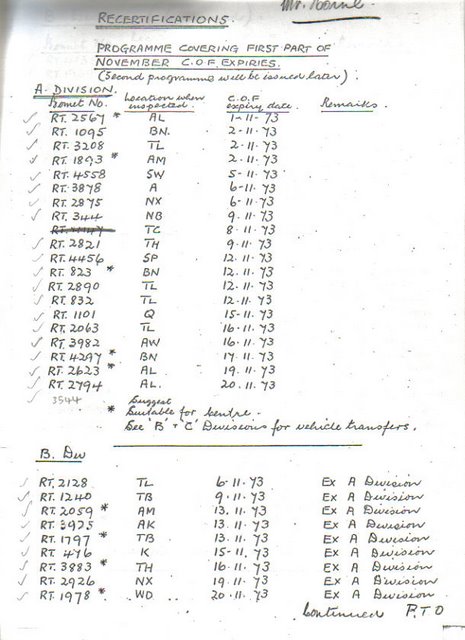 Mr. Horne
RECERTIFICATIONS.
PROGRAMME COVERING FIRST PART OF
NOVEMBER C.O.F. EXPIRIES.
(Second programme will be issued later).
A. DIVISION.
Bonnet No. Location when inspected. C.O.F expiry date. Remarks.
✓ RT. 2567 * AL 1-11-73
✓ RT. 1095 BN. 2-11-73
✓ RT. 3208 TL 2-11-73
✓ RT. 1893 * AM 2.11.73
✓ RT. 4558 SW 5-11-73
✓ RT. 3878 A 6-11-73
✓ RT. 2875 NX 6.11.73
✓ RT. 344 NB 9.11.73
TC 8.11.73
✓ RT. 2821 TH 9.11.73
✓ RT. 4456 SP 12.11.73
✓ RT. 823 * BN 12.11.73
✓ RT. 2890 TL 12.11.73
✓ RT. 832 TL 12.11.73
✓ RT. 1101 Q 15-11-73
✓ RT. 2063 TL 16.11.73
✓ RT. 3982 AW 16.11.73
✓ RT. 4297 * BN 17.11.73
✓ RT. 2623 * AL 19.11.73
✓ RT. 2794 AL. 20.11.73
✓ 3544 Suggest
* Suitable for Centre.
See 'B' + 'C' Divisions for vehicle transfers.
B. Div
✓ RT. 2128 TL 6-11-73 Ex A Division
✓ RT. 1240 TB 9.11.73 Ex A Division
✓ RT. 2059 * AM 13.11.73 Ex A Division
✓ RT. 3975 AK 13.11.73 Ex A Division
✓ RT. 1797 * TB 13.11.73 Ex A Division
✓ RT. 476 K 15-11.73 Ex A Division
✓ RT. 3883 * TH 16.11.73 Ex A Division
✓ RT. 2926 NX 19.11.73 Ex A Division
✓ RT. 1978 * WD 20.11.73 Ex A Division
Continued P.T.O